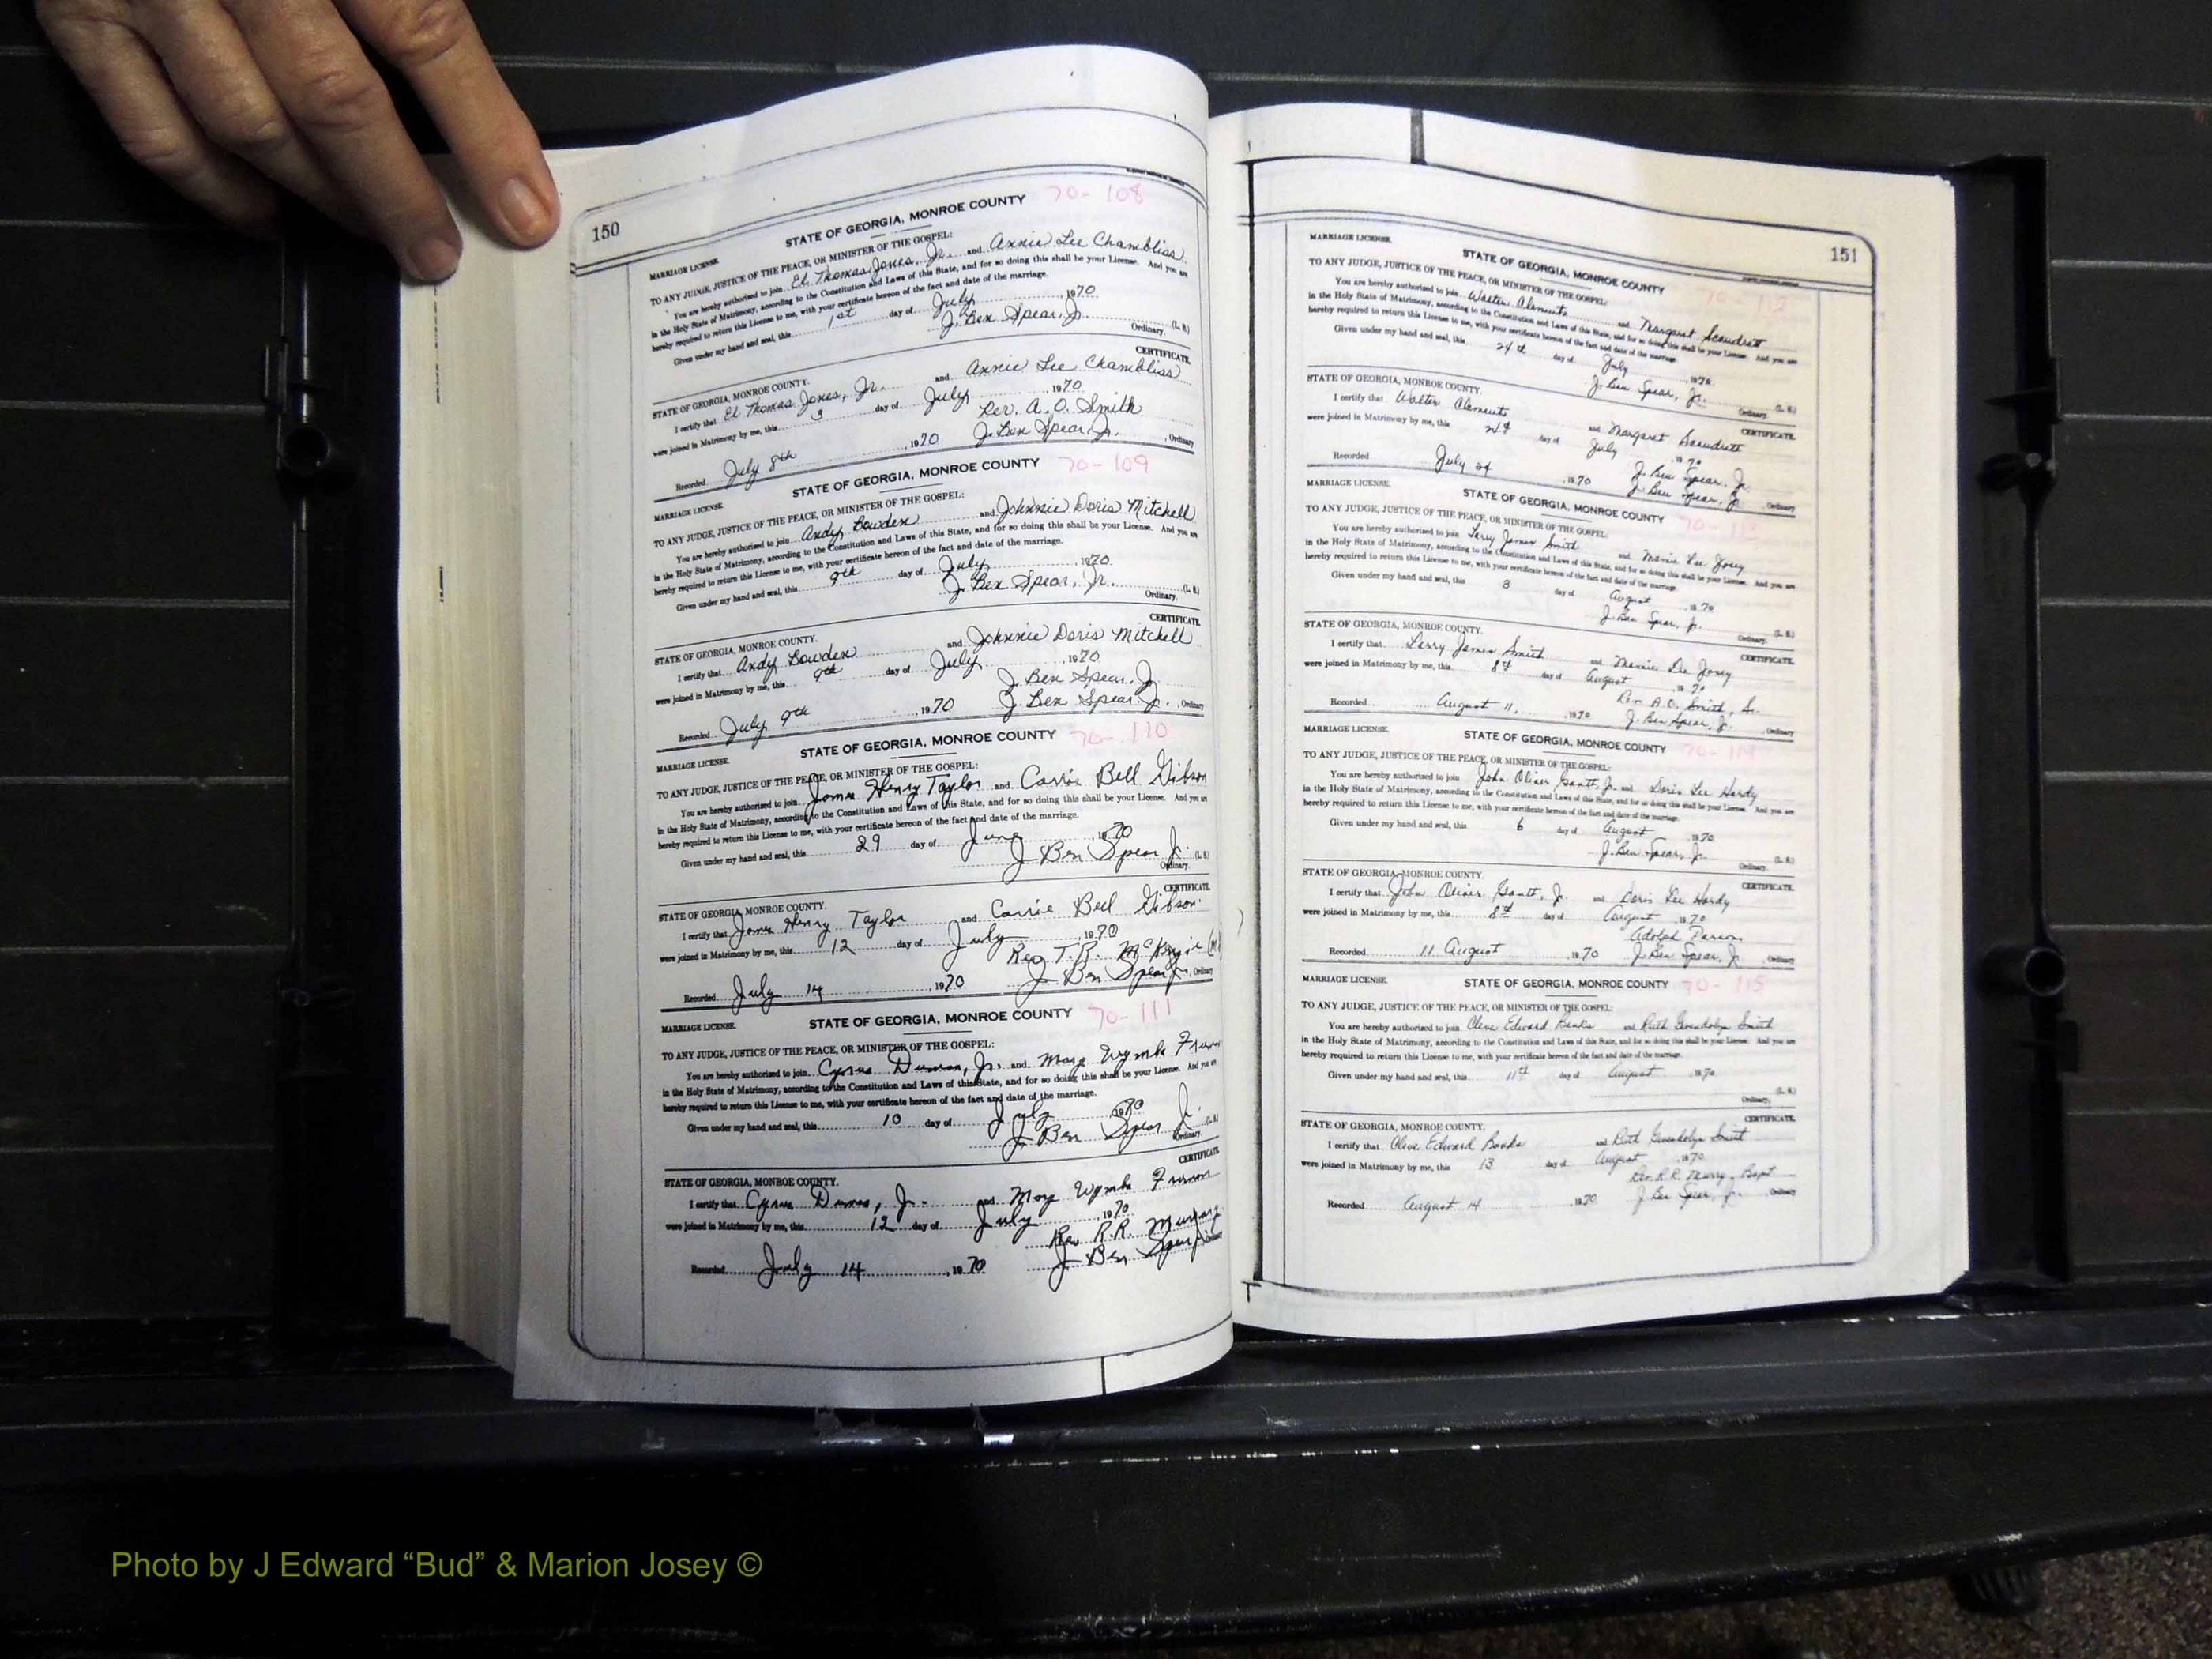 150
STATE OF GEORGIA, MONROE COUNTY 70-108
MARRIAGE LICENSE.
TO ANY JUDGE, JUSTICE OF THE PEACE, OR MINISTER OF THE GOSPEL:
You are hereby authorized to join El Thomas Jones, Jr. and Annie Lee Chambliss
in the Holy State of Matrimony, according to the Constitution and Laws of this State, and for so doing this shall be your License. And you are
hereby required to return this License to me, with your certificate hereon of the fact and date of the marriage.
Given under my hand and seal, this 1st day of July, 1970
J. Ben Spear, Jr. (L. S.)
Ordinary.
CERTIFICATE.
STATE OF GEORGIA, MONROE COUNTY.
I certify that El Thomas Jones, Jr. and Annie Lee Chambliss
were joined in Matrimony by me, this 3 day of July, 1970
Rev. A. O. Smith
Recorded July 8th, 1970 J. Ben Spear, Jr., Ordinary
STATE OF GEORGIA, MONROE COUNTY 70-109
MARRIAGE LICENSE.
TO ANY JUDGE, JUSTICE OF THE PEACE, OR MINISTER OF THE GOSPEL:
You are hereby authorized to join Andy Bowden and Johnnie Doris Mitchell
in the Holy State of Matrimony, according to the Constitution and Laws of this State, and for so doing this shall be your License. And you are
hereby required to return this License to me, with your certificate hereon of the fact and date of the marriage.
Given under my hand and seal, this 9th day of July, 1970
J. Ben Spear, Jr. (L. S.)
Ordinary.
CERTIFICATE.
STATE OF GEORGIA, MONROE COUNTY.
I certify that Andy Bowden and Johnnie Doris Mitchell
were joined in Matrimony by me, this 9th day of July, 1970
J. Ben Spear, Jr.
Recorded July 9th, 1970 J. Ben Spear, Jr., Ordinary
STATE OF GEORGIA, MONROE COUNTY 70-110
MARRIAGE LICENSE.
TO ANY JUDGE, JUSTICE OF THE PEACE, OR MINISTER OF THE GOSPEL:
You are hereby authorized to join James Henry Taylor and Carrie Bell Gibson
in the Holy State of Matrimony, according to the Constitution and Laws of this State, and for so doing this shall be your License. And you are
hereby required to return this License to me, with your certificate hereon of the fact and date of the marriage.
Given under my hand and seal, this 29 day of June, 1970
J Ben Spear Jr. (L. S.)
Ordinary.
CERTIFICATE.
STATE OF GEORGIA, MONROE COUNTY.
I certify that James Henry Taylor and Carrie Bell Gibson
were joined in Matrimony by me, this 12 day of July, 1970
Rev T.R.
Recorded July 14, 1970 J Ben Spear Jr, Ordinary
STATE OF GEORGIA, MONROE COUNTY 70-111
MARRIAGE LICENSE.
TO ANY JUDGE, JUSTICE OF THE PEACE, OR MINISTER OF THE GOSPEL:
You are hereby authorized to join Cyrus Dumas, Jr. and Mary
in the Holy State of Matrimony, according to the Constitution and Laws of this State, and for so doing this shall be your License. And you are
hereby required to return this License to me, with your certificate hereon of the fact and date of the marriage.
Given under my hand and seal, this 10 day of July 1970
J Ben Spear Jr. (L. S.)
Ordinary.
CERTIFICATE.
STATE OF GEORGIA, MONROE COUNTY.
I certify that Cyrus Dumas, Jr. and Mary
were joined in Matrimony by me, this 12 day of July, 1970
Rev R.R. Murray
Recorded July 14, 1970 J Ben Spear Jr Ordinary
151
MARRIAGE LICENSE.
STATE OF GEORGIA, MONROE COUNTY 70-112
TO ANY JUDGE, JUSTICE OF THE PEACE, OR MINISTER OF THE GOSPEL:
You are hereby authorized to join Walter Clements and Margaret Scandrett
in the Holy State of Matrimony, according to the Constitution and Laws of this State, and for so doing this shall be your License. And you are
hereby required to return this License to me, with your certificate hereon of the fact and date of the marriage.
Given under my hand and seal, this 24th day of July, 1970
J. Ben Spear, Jr. (L. S.)
Ordinary.
STATE OF GEORGIA, MONROE COUNTY.
CERTIFICATE.
I certify that Walter Clements and Margaret Scandrett
were joined in Matrimony by me, this 24 day of July, 1970
J. Ben Spear, Jr.
Recorded July 24, 1970 J. Ben Spear, Jr., Ordinary
MARRIAGE LICENSE.
STATE OF GEORGIA, MONROE COUNTY 70-113
TO ANY JUDGE, JUSTICE OF THE PEACE, OR MINISTER OF THE GOSPEL:
You are hereby authorized to join Larry James Smith and Mamie Lee Josey
in the Holy State of Matrimony, according to the Constitution and Laws of this State, and for so doing this shall be your License. And you are
hereby required to return this License to me, with your certificate hereon of the fact and date of the marriage.
Given under my hand and seal, this 3 day of August, 1970
J. Ben Spear, Jr. (L. S.)
Ordinary.
STATE OF GEORGIA, MONROE COUNTY.
CERTIFICATE.
I certify that Larry James Smith and Mamie Lee Josey
were joined in Matrimony by me, this 8th day of August, 1970
Rev A.O. Smith, Sr.
Recorded August 11, 1970 J. Ben Spear, Jr., Ordinary
MARRIAGE LICENSE.
STATE OF GEORGIA, MONROE COUNTY 70-114
TO ANY JUDGE, JUSTICE OF THE PEACE, OR MINISTER OF THE GOSPEL:
You are hereby authorized to join John Oliver Gantt, Jr. and Doris Lee Hardy
in the Holy State of Matrimony, according to the Constitution and Laws of this State, and for so doing this shall be your License. And you are
hereby required to return this License to me, with your certificate hereon of the fact and date of the marriage.
Given under my hand and seal, this 6 day of August, 1970
J. Ben Spear, Jr. (L. S.)
Ordinary.
STATE OF GEORGIA, MONROE COUNTY.
CERTIFICATE.
I certify that John Oliver Gantt, Jr. and Doris Lee Hardy
were joined in Matrimony by me, this 8th day of August, 1970
Adolph Parson
Recorded 11 August, 1970 J. Ben Spear, Jr, Ordinary
MARRIAGE LICENSE.
STATE OF GEORGIA, MONROE COUNTY 70-115
TO ANY JUDGE, JUSTICE OF THE PEACE, OR MINISTER OF THE GOSPEL:
You are hereby authorized to join Clive Edward Banks and Ruth Gwendolyn Smith
in the Holy State of Matrimony, according to the Constitution and Laws of this State, and for so doing this shall be your License. And you are
hereby required to return this License to me, with your certificate hereon of the fact and date of the marriage.
Given under my hand and seal, this 11th day of August, 1970
(L. S.)
Ordinary.
STATE OF GEORGIA, MONROE COUNTY.
CERTIFICATE.
I certify that Clive Edward Banks and Ruth Gwendolyn Smith
were joined in Matrimony by me, this 13 day of August, 1970
Rev R.R. Murry, Bapt
Recorded August 14, 1970 J. Ben Spear, Jr., Ordinary
Photo by J Edward “Bud” & Marion Josey ©